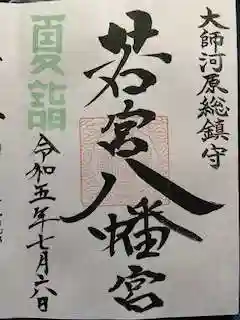 大師河原総鎮守
若宮八幡宮
夏詣
令和五年七月六日